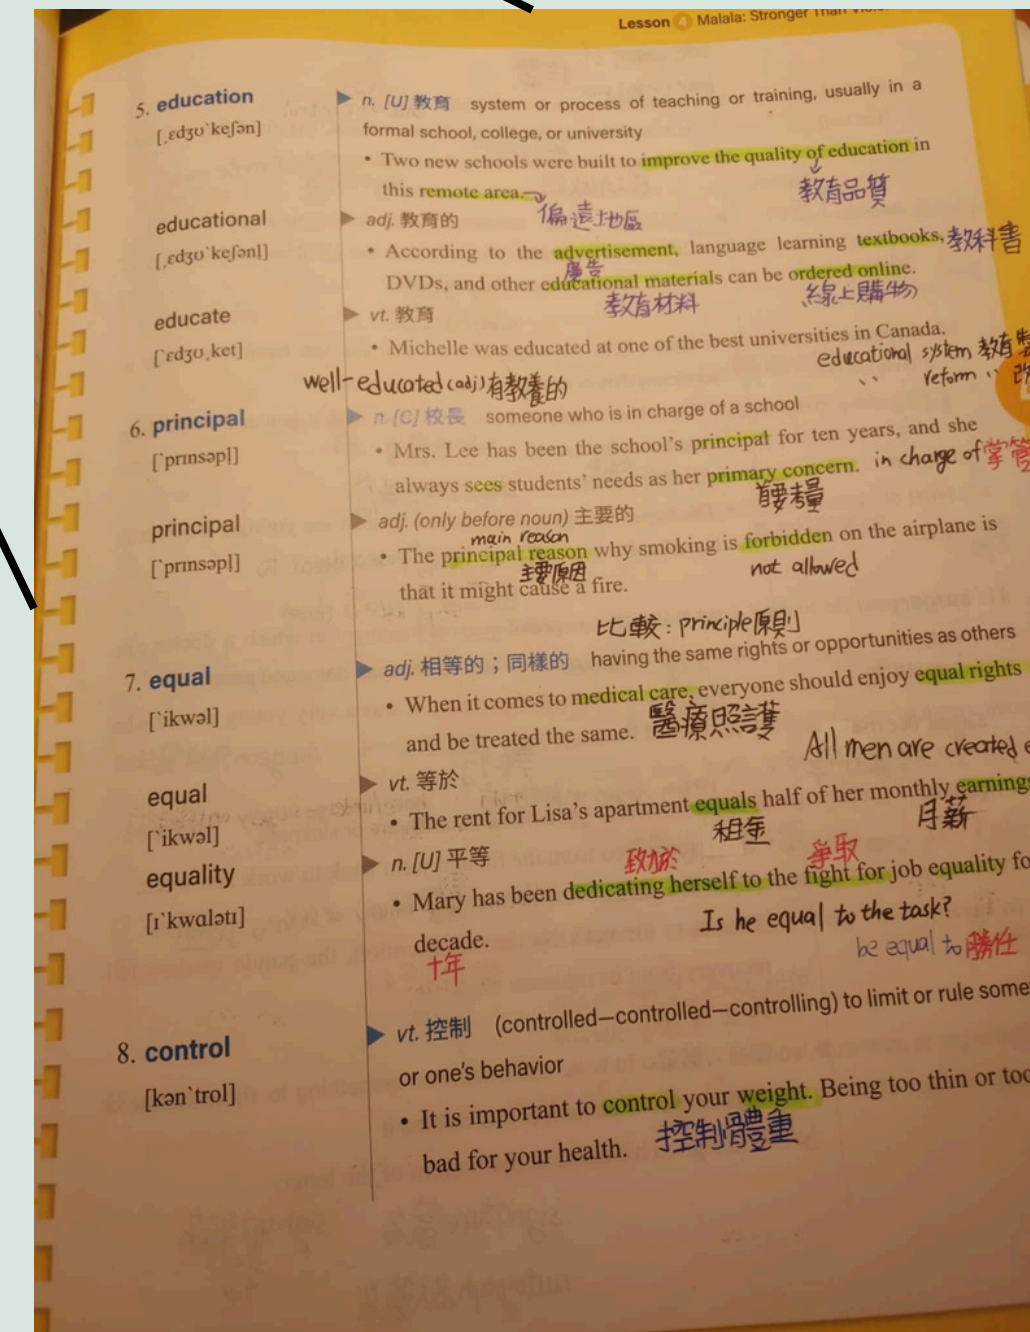 Lesson 4 Malala: Stronger Than
5. education
[ˌɛdʒʊˋkeʃən]
n. [U] 教育 system or process of teaching or training, usually in a
formal school, college, or university
• Two new schools were built to improve the quality of education in
this remote area.
教育品質
偏遠地區
educational
[ˌɛdʒʊˋkeʃənl̩]
adj. 教育的
• According to the advertisement, language learning textbooks, 教科書
廣告
DVDs, and other educational materials can be ordered online.
教育材料
線上購物
educate
[ˋɛdʒʊˌket]
vt. 教育
• Michelle was educated at one of the best universities in Canada.
educational system 教育
reform
well-educated (adj) 有教養的
6. principal
[ˋprɪnsəpl̩]
n. [C] 校長 someone who is in charge of a school
• Mrs. Lee has been the school's principal for ten years, and she
always sees students' needs as her primary concern. in charge of 掌管
principal
[ˋprɪnsəpl̩]
adj. (only before noun) 主要的
main reason
• The principal reason why smoking is forbidden on the airplane is
主要原因
not allowed
that it might cause a fire.
比較: principle 原則
7. equal
[ˋikwəl]
adj. 相等的；同樣的 having the same rights or opportunities as others
• When it comes to medical care, everyone should enjoy equal rights
and be treated the same. 醫療照護
All men are created
equal
[ˋikwəl]
vt. 等於
• The rent for Lisa's apartment equals half of her monthly earnings
租金
月薪
equality
[ɪˋkwɑlətɪ]
n. [U] 平等
致力於
爭取
• Mary has been dedicating herself to the fight for job equality
decade.
十年
Is he equal to the task?
be equal to 勝任
8. control
[kənˋtrol]
vt. 控制 (controlled—controlled—controlling) to limit or rule
or one's behavior
• It is important to control your weight. Being too thin or too
bad for your health. 控制體重